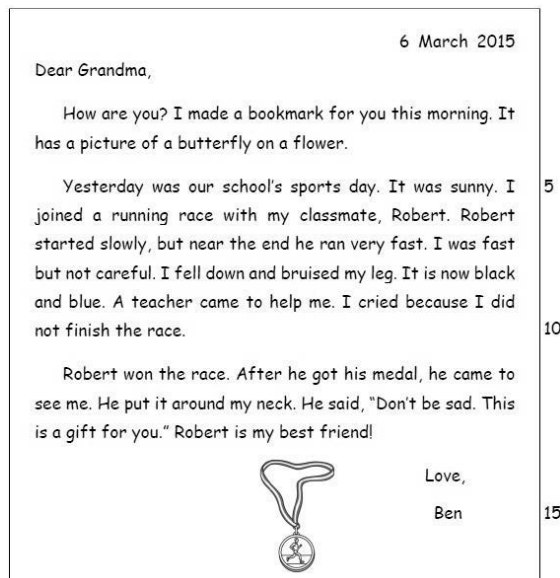 6 March 2015
Dear Grandma,
How are you? I made a bookmark for you this morning. It
has a picture of a butterfly on a flower.
Yesterday was our school's sports day. It was sunny. I 5
joined a running race with my classmate, Robert. Robert
started slowly, but near the end he ran very fast. I was fast
but not careful. I fell down and bruised my leg. It is now black
and blue. A teacher came to help me. I cried because I did
not finish the race. 10
Robert won the race. After he got his medal, he came to
see me. He put it around my neck. He said, "Don't be sad. This
is a gift for you." Robert is my best friend!
Love,
Ben 15